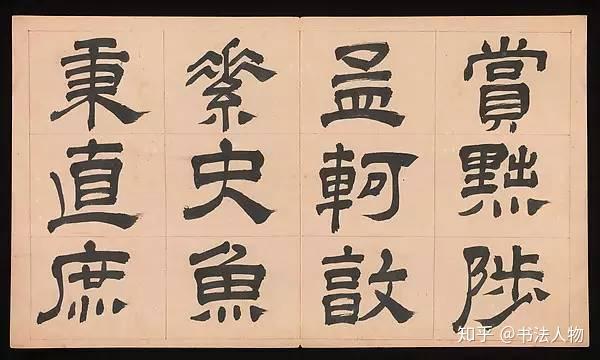 賞黜陟
孟軻敦
素史魚
秉直庶
知乎 @书法人物